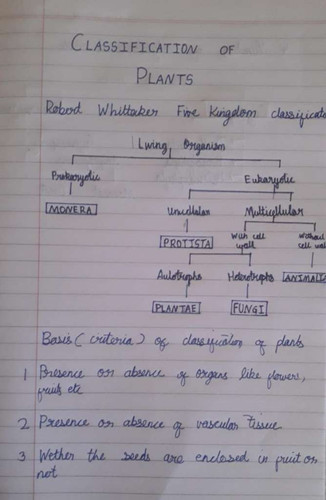 CLASSIFICATION OF
PLANTS
Robert Whittaker Five Kingdom classificat
Living Organism
Prokaryotic Eukaryotic
MONERA Unicellular Multicellular
PROTISTA With cell wall Without cell wal
Autotrophs Heterotrophs ANIMALIA
PLANTAE FUNGI
Basis (criteria) of classification of plants
1 Presence or absence of organs like flowers,
fruits etc
2 Presence or absence of vascular tissue
3 Wether the seeds are enclosed in fruit or
not